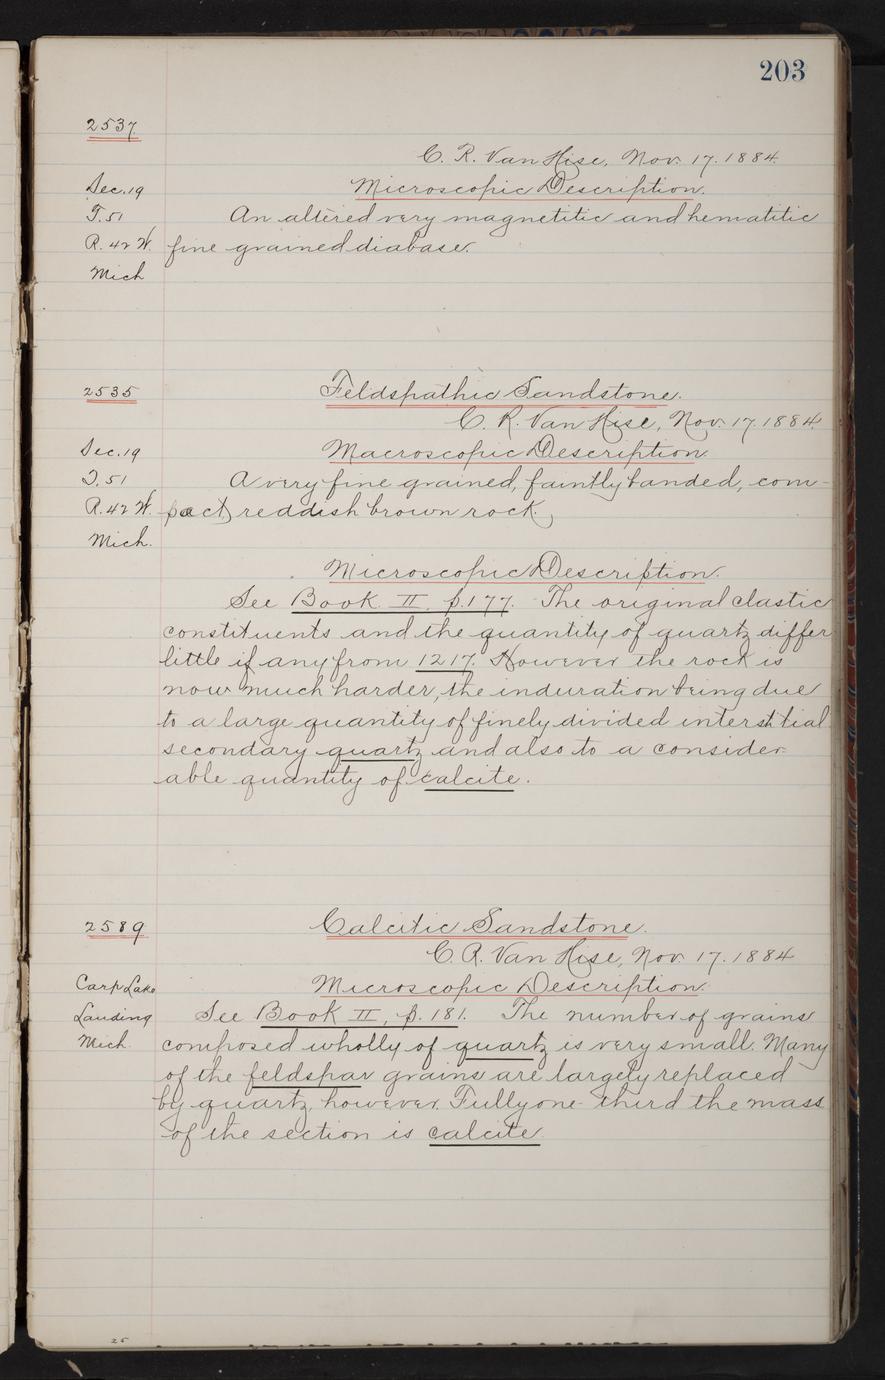 203
2537
C. R. Van Hise, Nov. 17. 1884.
Sec. 19
Microscopic Description.
T. 51
An altered very magnetitic and hematitic
R. 42 W.
fine grained diabase.
Mich
2535
Feldspathic Sandstone.
C. R. Van Hise, Nov. 17. 1884.
Sec. 19
Macroscopic Description.
T. 51
A very fine grained, faintly banded, com-
R. 42 W.
pact, reddish brown rock.
Mich.
Microscopic Description.
See Book II, p. 177. The original clastic
constituents and the quantity of quartz differ
little if any from 1217. However the rock is
now much harder, the induration being due
to a large quantity of finely divided interstitial
secondary quartz and also to a consider-
able quantity of calcite.
2589
Calcitic Sandstone.
C. R. Van Hise, Nov. 17. 1884
Carp Lake
Microscopic Description.
Landing
See Book II, p. 181. The number of grains
Mich.
composed wholly of quartz is very small. Many
of the feldspar grains are largely replaced
by quartz, however. Fully one-third the mass
of the section is calcite.
25